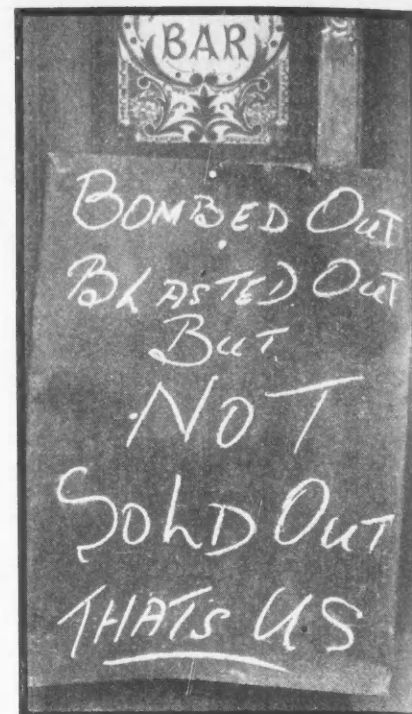 BAR
BOMBED OUT
BLASTED OUT
BUT
NOT
SOLD OUT
THATS US